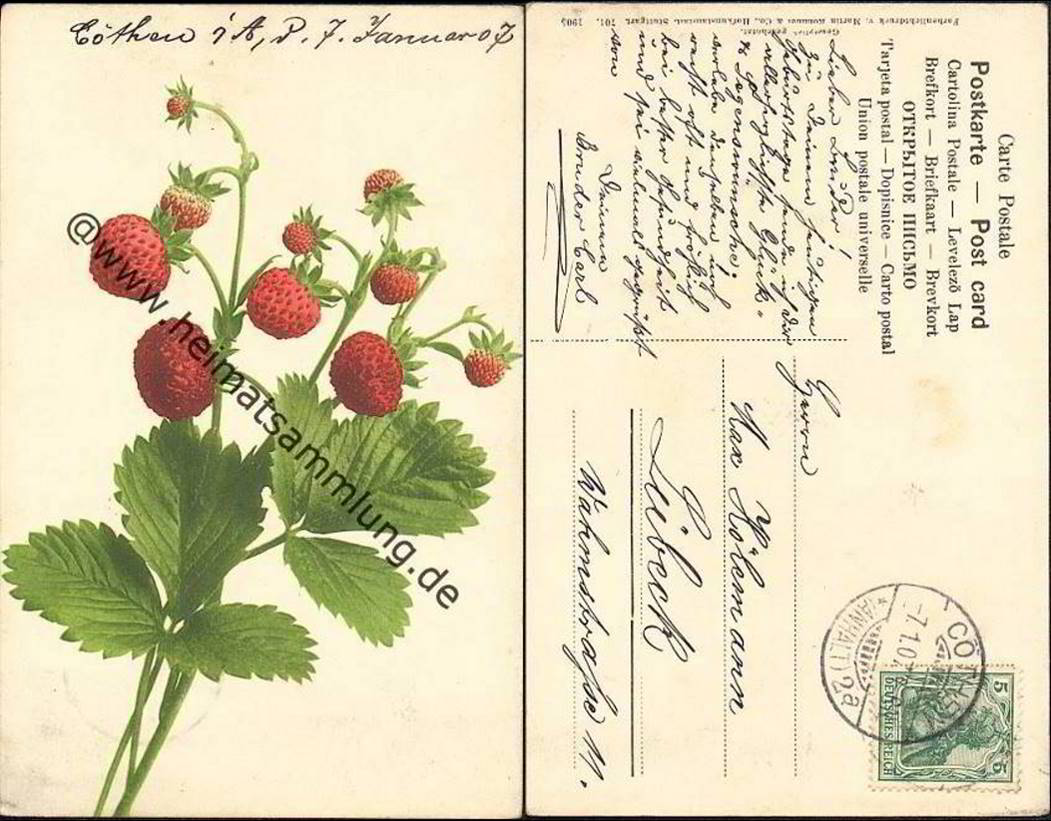 Cöthen i/A, d. 7. Januar 07
@www.heimatsammlung.de
Carte Postale
Postkarte — Post card
Cartolina Postale — Levelező Lap
Brefkort — Briefkaart — Brevkort
ОТКРЫТОЕ ПИСЬМО
Tarjeta postal — Dopisnice — Carto postal
Union postale universelle
Lieber Bruder!
Zu Deinem heutigen
Geburtstage sende ich Dir
allerherzlichste Glück-
& Segenswünsche.
verlebe denselben noch
recht oft und fröhlich
bei bester Gesundheit
und sei vielmals gegrüßt
von
Deinem
Bruder Carl
Farbenlichtdruck v. Martin Rommel & Co., Hofkunstanstalt, Stuttgart. 701. 1905
Gesetzlich geschützt.
Herrn
Max Hölemann
Lübeck
Wahmstraße 11.
CÖTHEN
-7.1.07
*(ANHALT) 2a
5 5
DEUTSCHES REICH